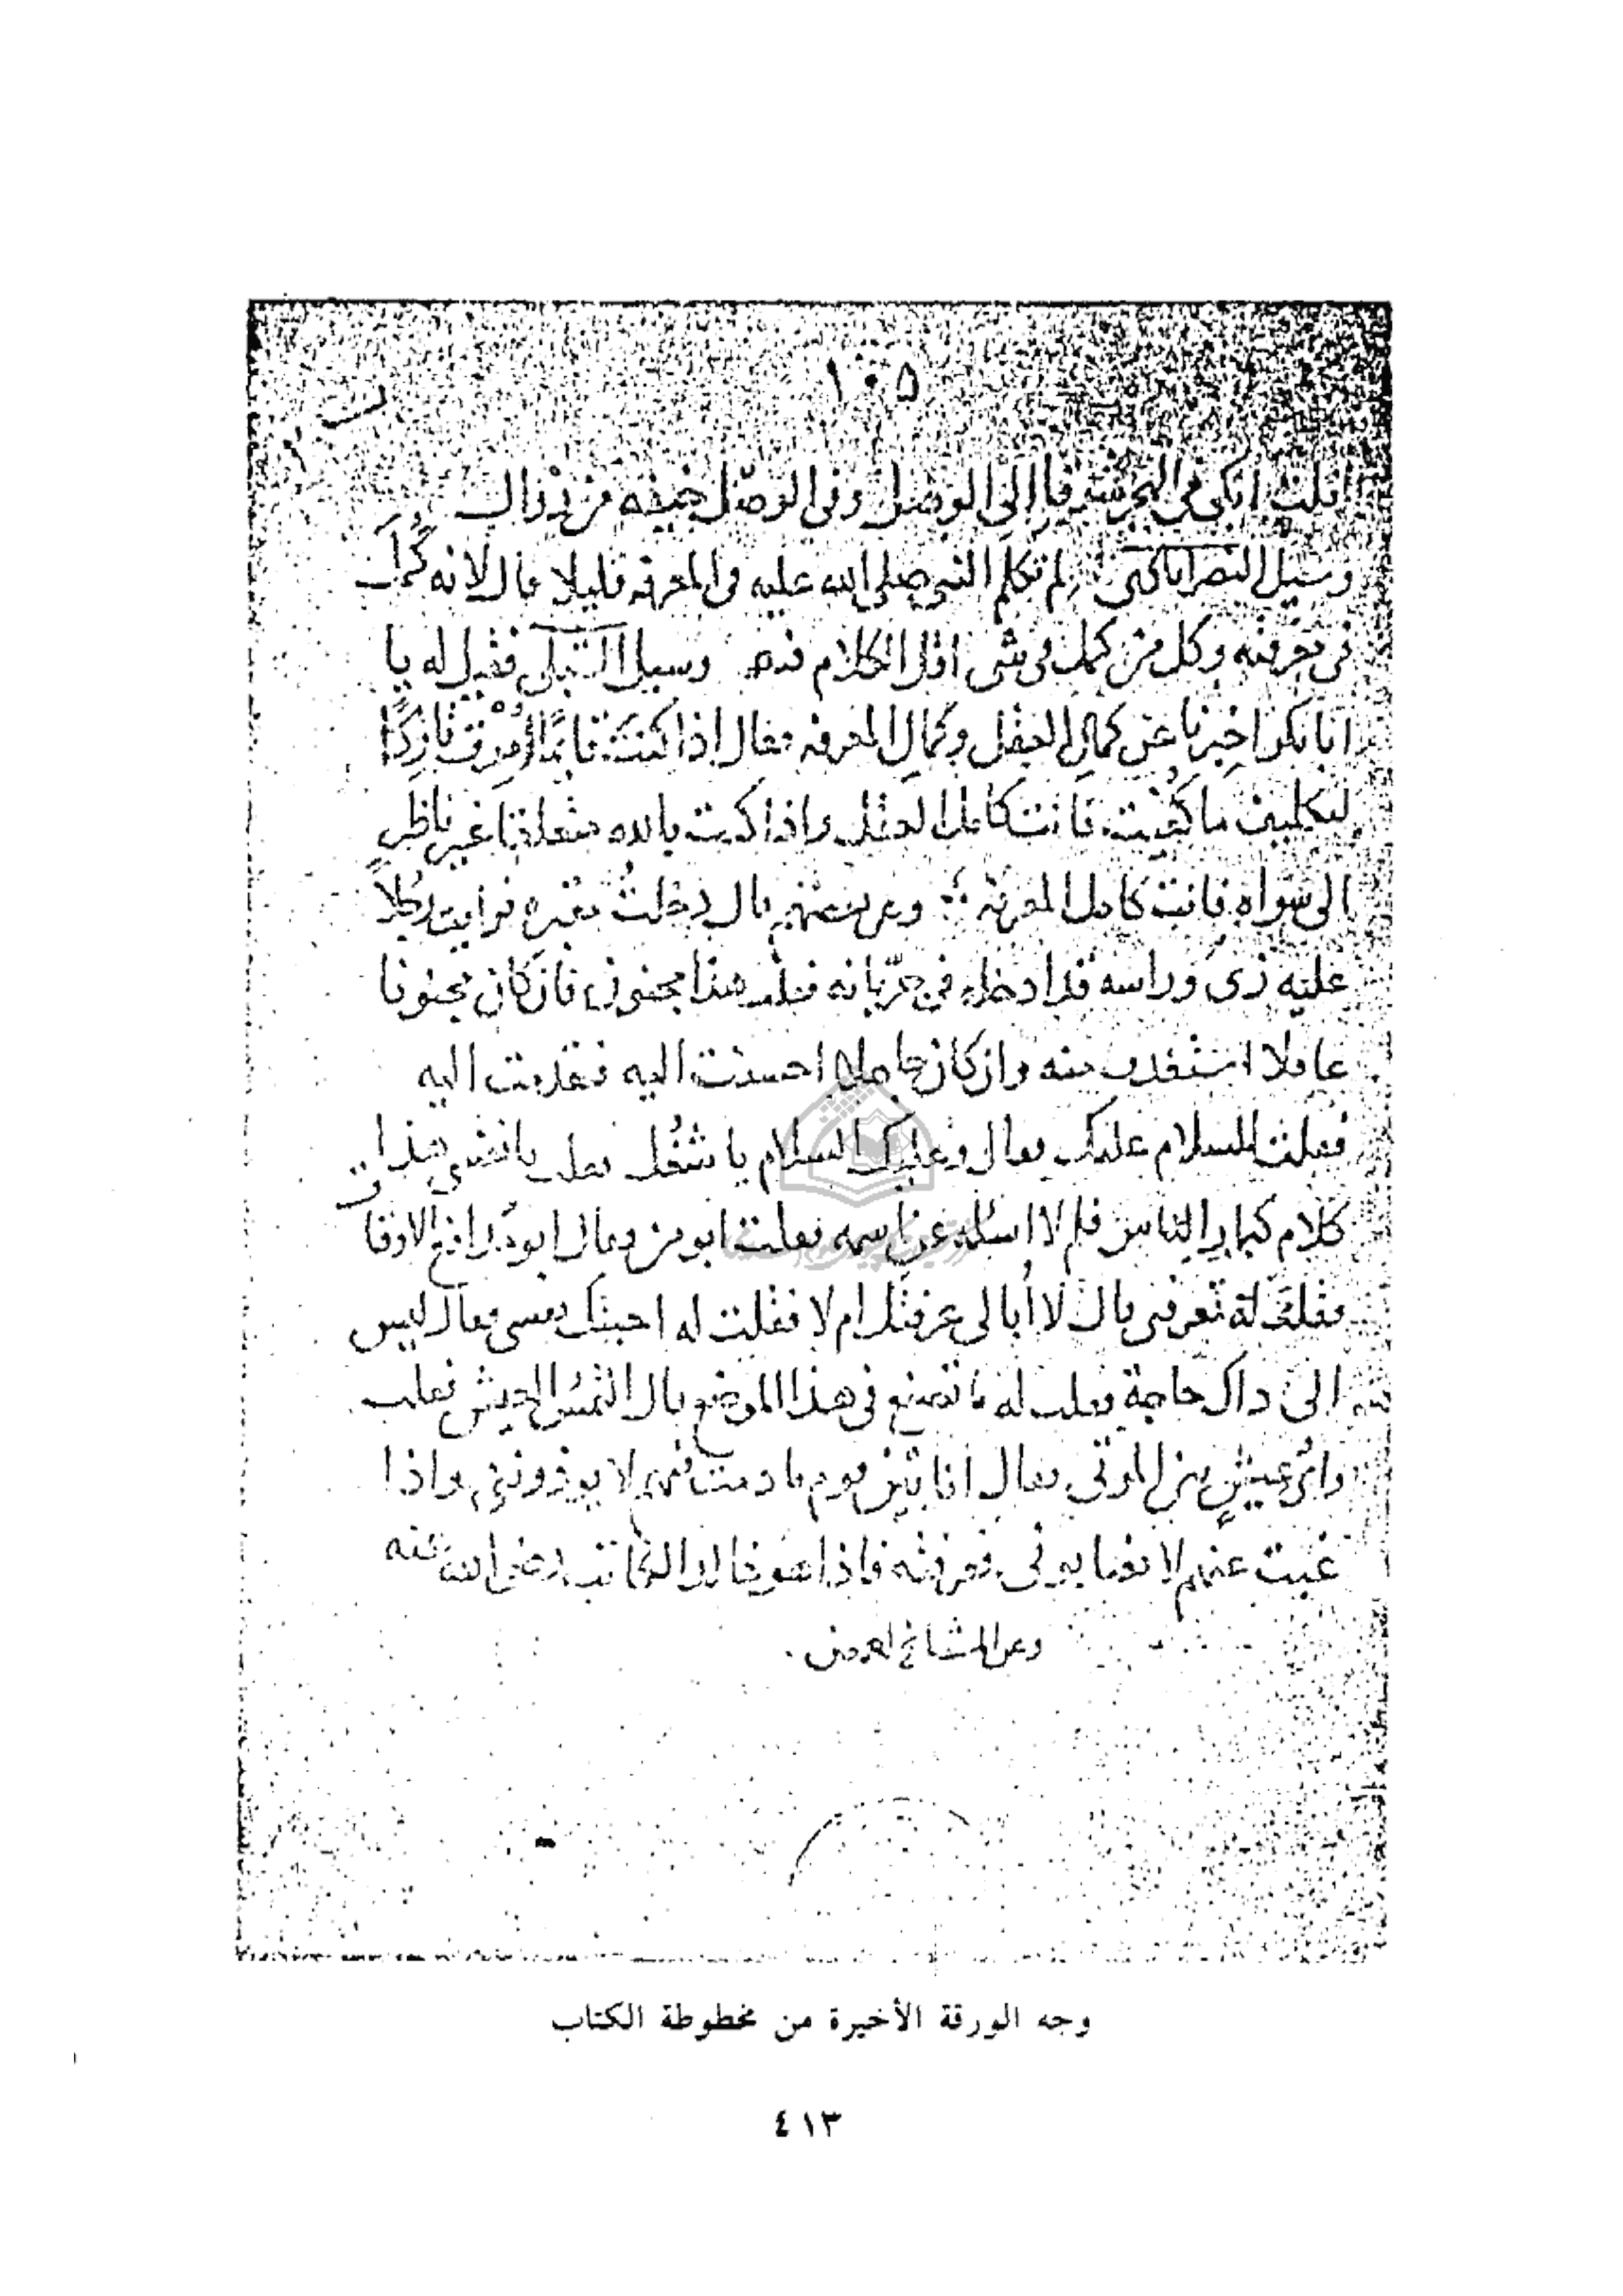 ١٠٥
ابكي في الهجر شوقا الى الوصل وفي الوصل خيفة من زوال
وسيل النصراباذي لم تكلم النبي صلى الله عليه في المعرفة قليلا قال لانه كمل
في معرفته وكل من كمل في شي اقل الكلام فيه وسيل الشبلي فقيل له يا
ابا بكر اخبرنا عن كمال العقل وكمال المعرفة فقال اذا كنت قايما تاركا
ما كفيت فانت كامل العقل واذا كنت بالله متعلقا غير ناظر
الى سواه فانت كامل المعرفة وعن بعضهم قال دخلت مقبره فرايت رجلا
عليه زي وراسه قد ادخله في جربانه فقلت هذا مجنون فان كان مجنونا
عاقلا استفدت منه وان كان جاهلا احسنت اليه فتقدمت اليه
فقلت السلام عليك فقال وعليك السلام يا شغل فقلت يا نفسي هذا
كلام كبار الناس فلم لا اسئله عن اسمه فقلت ابو من فقال ابو الاوقات
فقلت له تعرفني قال لا ابالي عرفتك ام لا فقلت له احبتك نفسي فقال ليس
الى ذاك حاجة فقلت له ما تصنع في هذا الموضع قال التمس العيش فقلت
واي عيش بين الموتى فقال انا بين قوم ما دمت فيهم لا يوذونني واذا
غبت عنهم لا يغتابوني فعرفته فاذا هو خالد الكاتب رضي الله عنه
وعن المشائخ اجمعين
وجه الورقة الأخيرة من مخطوطة الكتاب
٤١٣